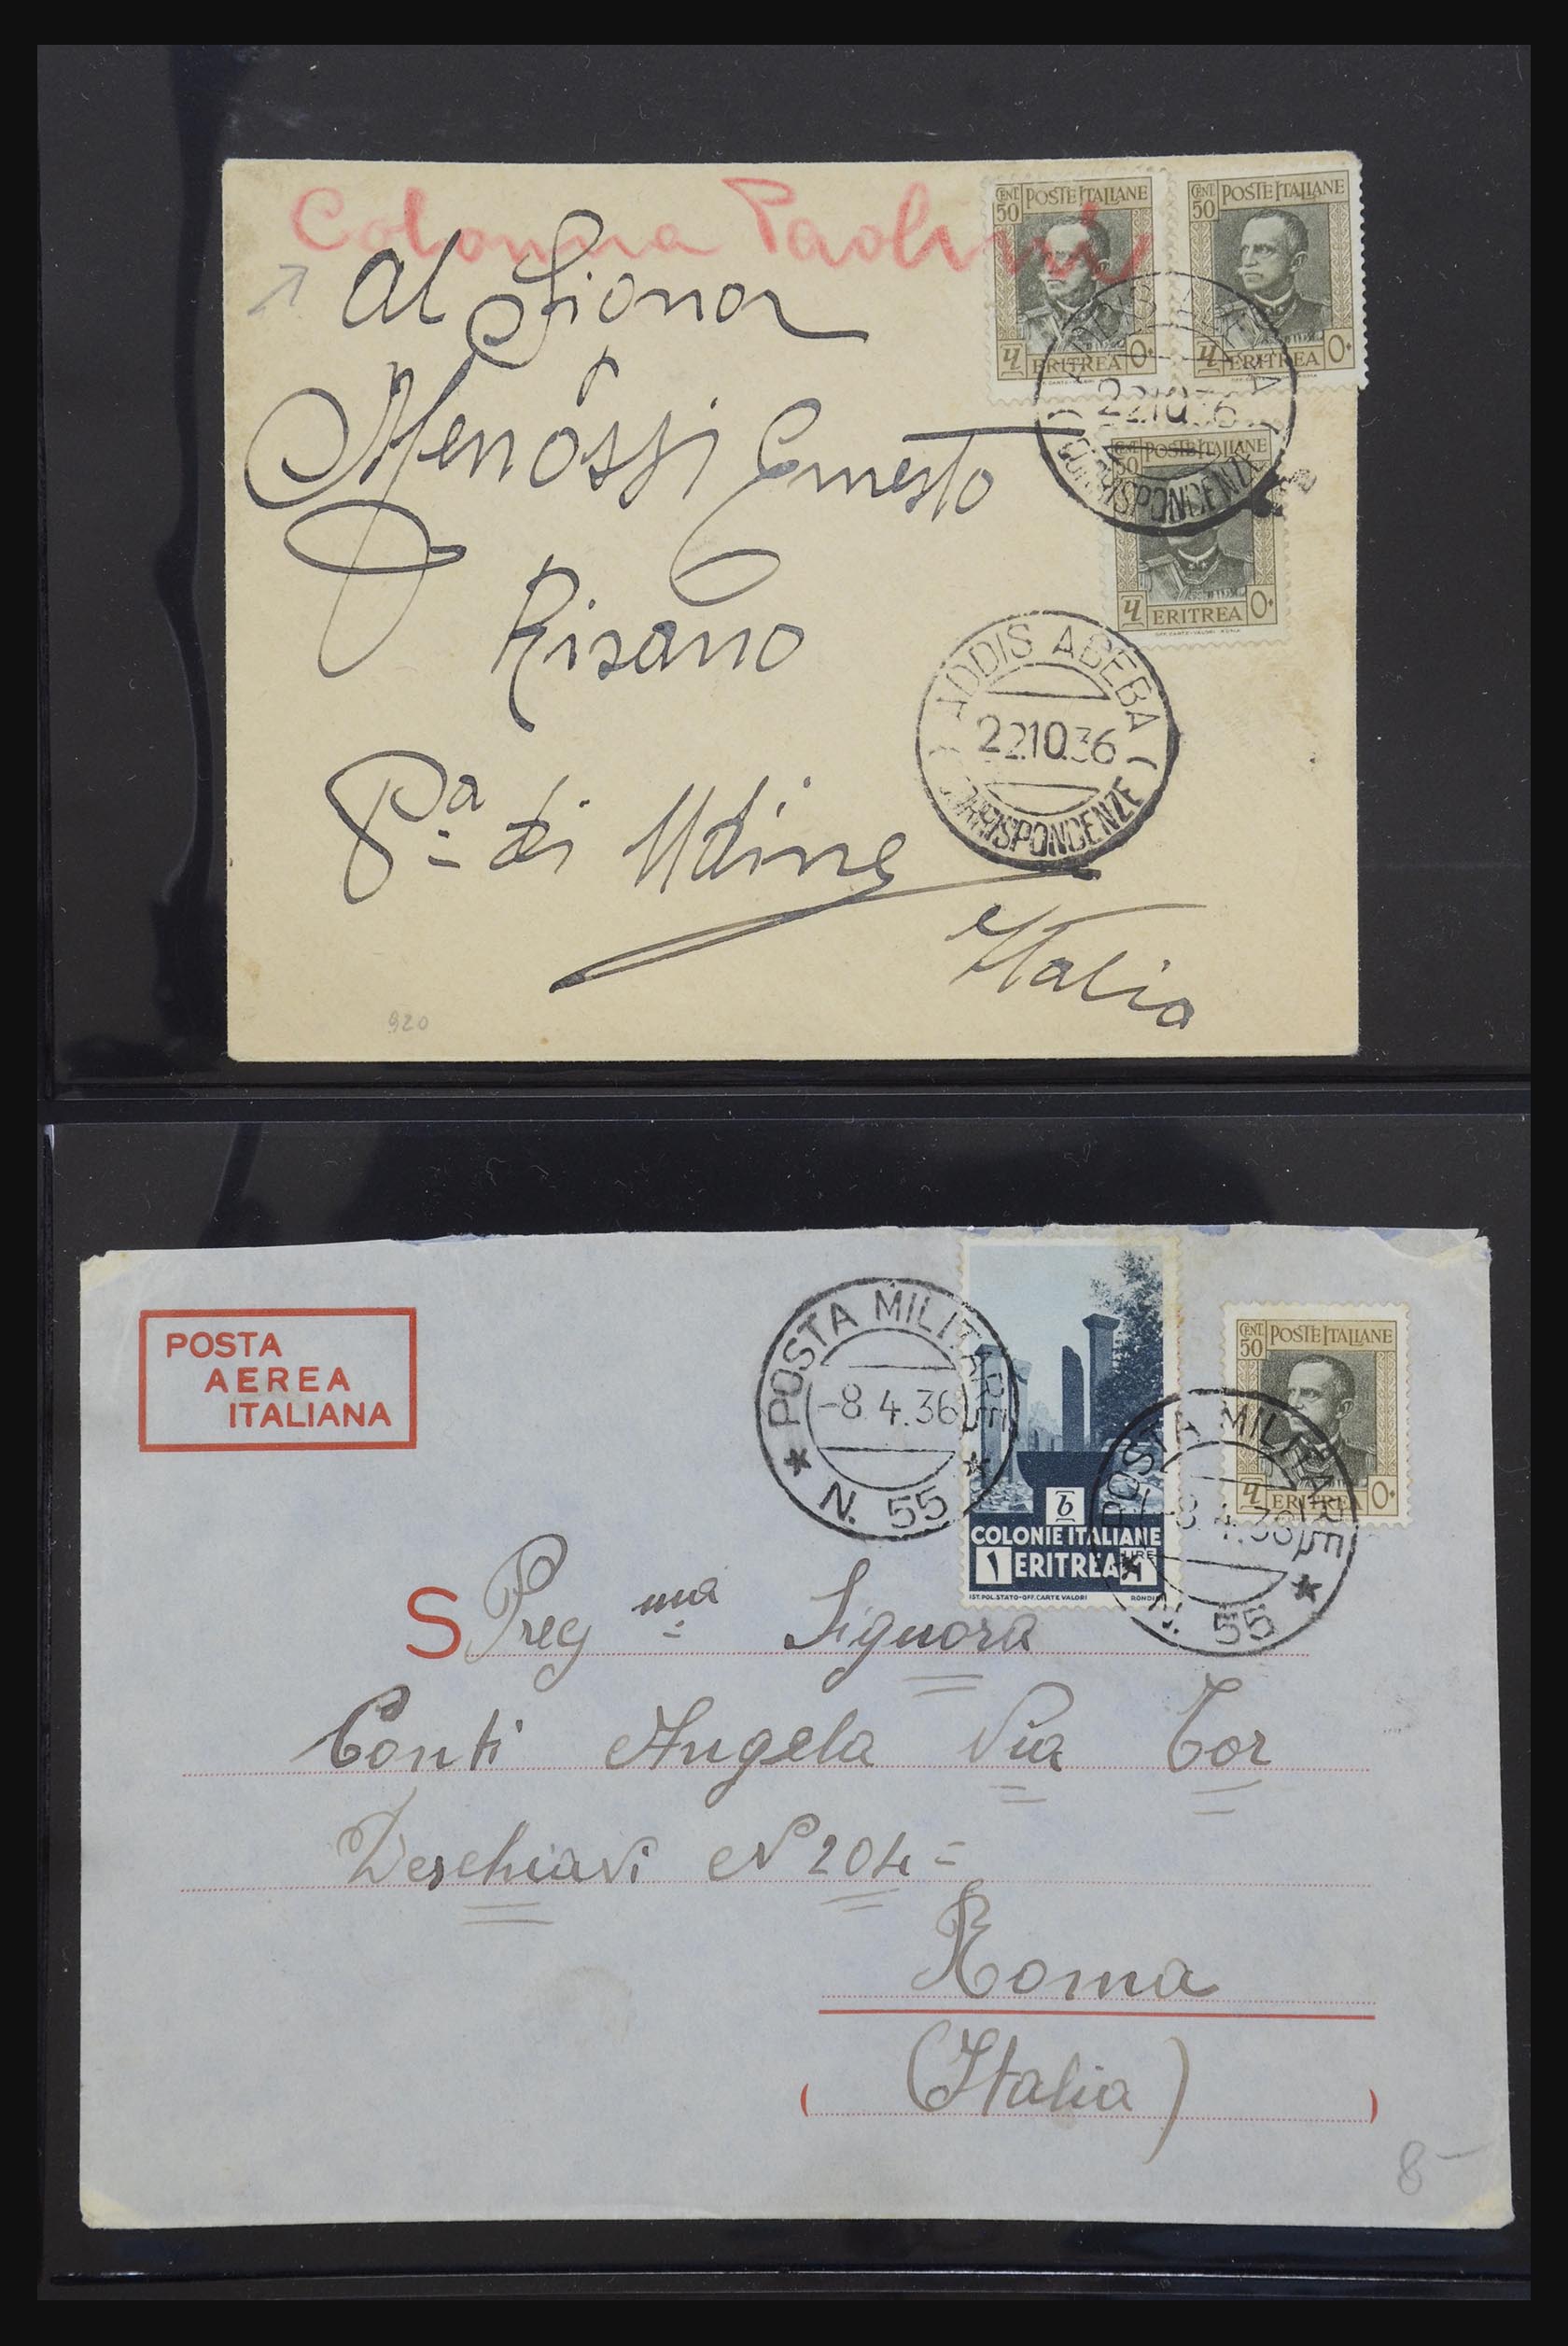 Colonna Paolini
Al Signor
Menossi Ernesto
Risano
Pa di Udine
Italia
920
CENT. 50 POSTE ITALIANE
ERITREA
CENT. 50 POSTE ITALIANE
ERITREA
ADDIS ABEBA
22.10.36
CORRISPONDENZE
CENT. 50 POSTE ITALIANE
ERITREA
ADDIS ABEBA
22.10.36
CORRISPONDENZE
POSTA
AEREA
ITALIANA
POSTA MILITARE
-8.4.36
N. 55
COLONIE ITALIANE
1 ERITREA LIRE 1
IST. POL. STATO-OFF. CARTE VALORI
CENT. 50 POSTE ITALIANE
ERITREA
POSTA MILITARE
-8.4.36
N. 55
S Preg ma Signora
Conti Angela Via Tor
Deschiavi N 204=
Roma
(Italia)
8-